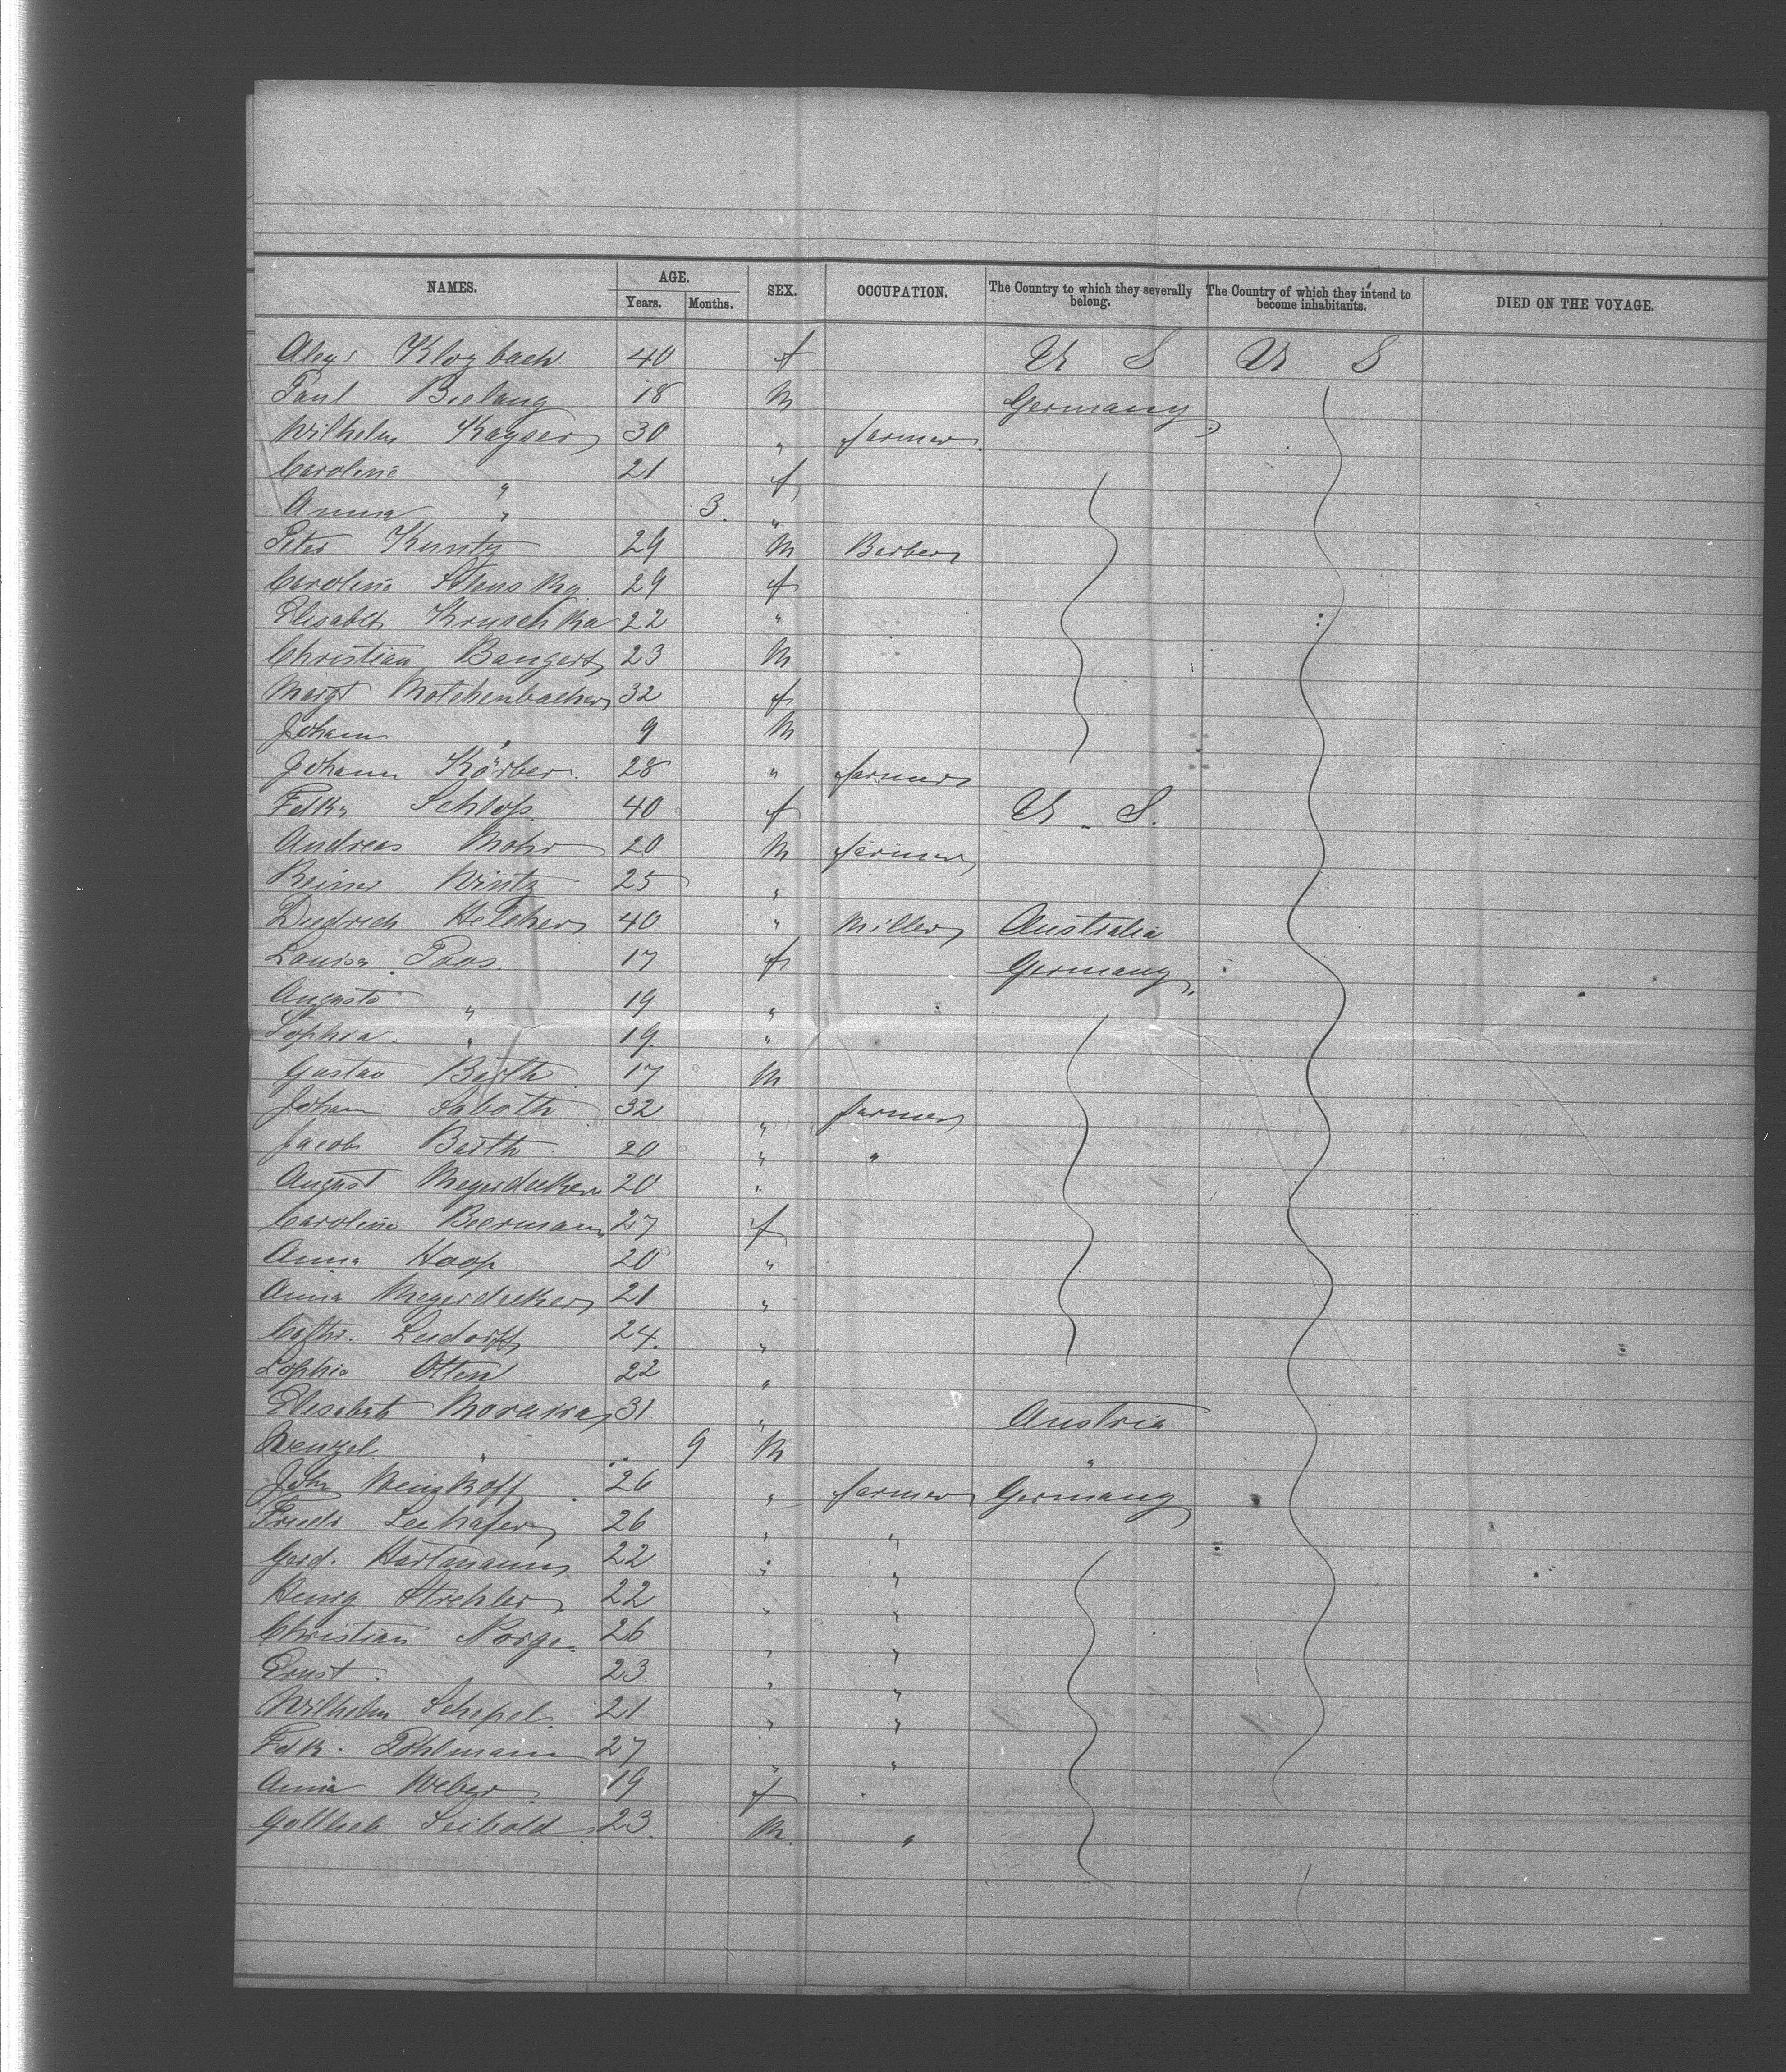 NAMES. AGE. SEX. OCCUPATION. The Country to which they severally belong. The Country of which they intend to become inhabitants. DIED ON THE VOYAGE.
Years. Months.
Klozbach 40 f U S U S
Paul Bielang 18 M Germany
Wilhelm Kayser 30 " farmer
Caroline " 21 f
Anna " 3. "
Peter Kuntz 29 M Barber
Caroline 29 f
Elisabeth Kruschka 22 "
Christian Bangert 23 M
Margt Motchenbacher 32 f
Johann " 9 M
Johann Körber. 28 " farmer
Fdke Schloß 40 f U. S.
Andreas Mohr 20 M farmer
Reiner Wintz 25 "
Diedrich Helcher 40 " Miller Australia
Louisa Paas. 17 f Germany
Augusta " 19 " "
Sophia " 19. "
Gustav Barth 17 M
Johann Saboth 32 " farmer
Jacob Barth 20 " "
August Meyerdieker 20 "
Caroline Beermann 27 f
Anna Hoop 20 "
Anna Meyerdieker 21 "
Cathr. Ludorff 24. "
Sophie Otten 22 "
Elisabeth 31 " Austria
Wenzel " 9 M "
John Weinkoff 26 " farmer Germany
Friedr Leehafer 26 " "
Gerd. Hartmann 22 " "
Henry Strehler 22 " "
Christian Norge. 26 " "
Ernst 23 " "
Wilhelm Schepel. 21 " "
Fdk. Pohlmann 27 " "
Anna Weber 19 f
Gottlieb Seibold 23. M. "